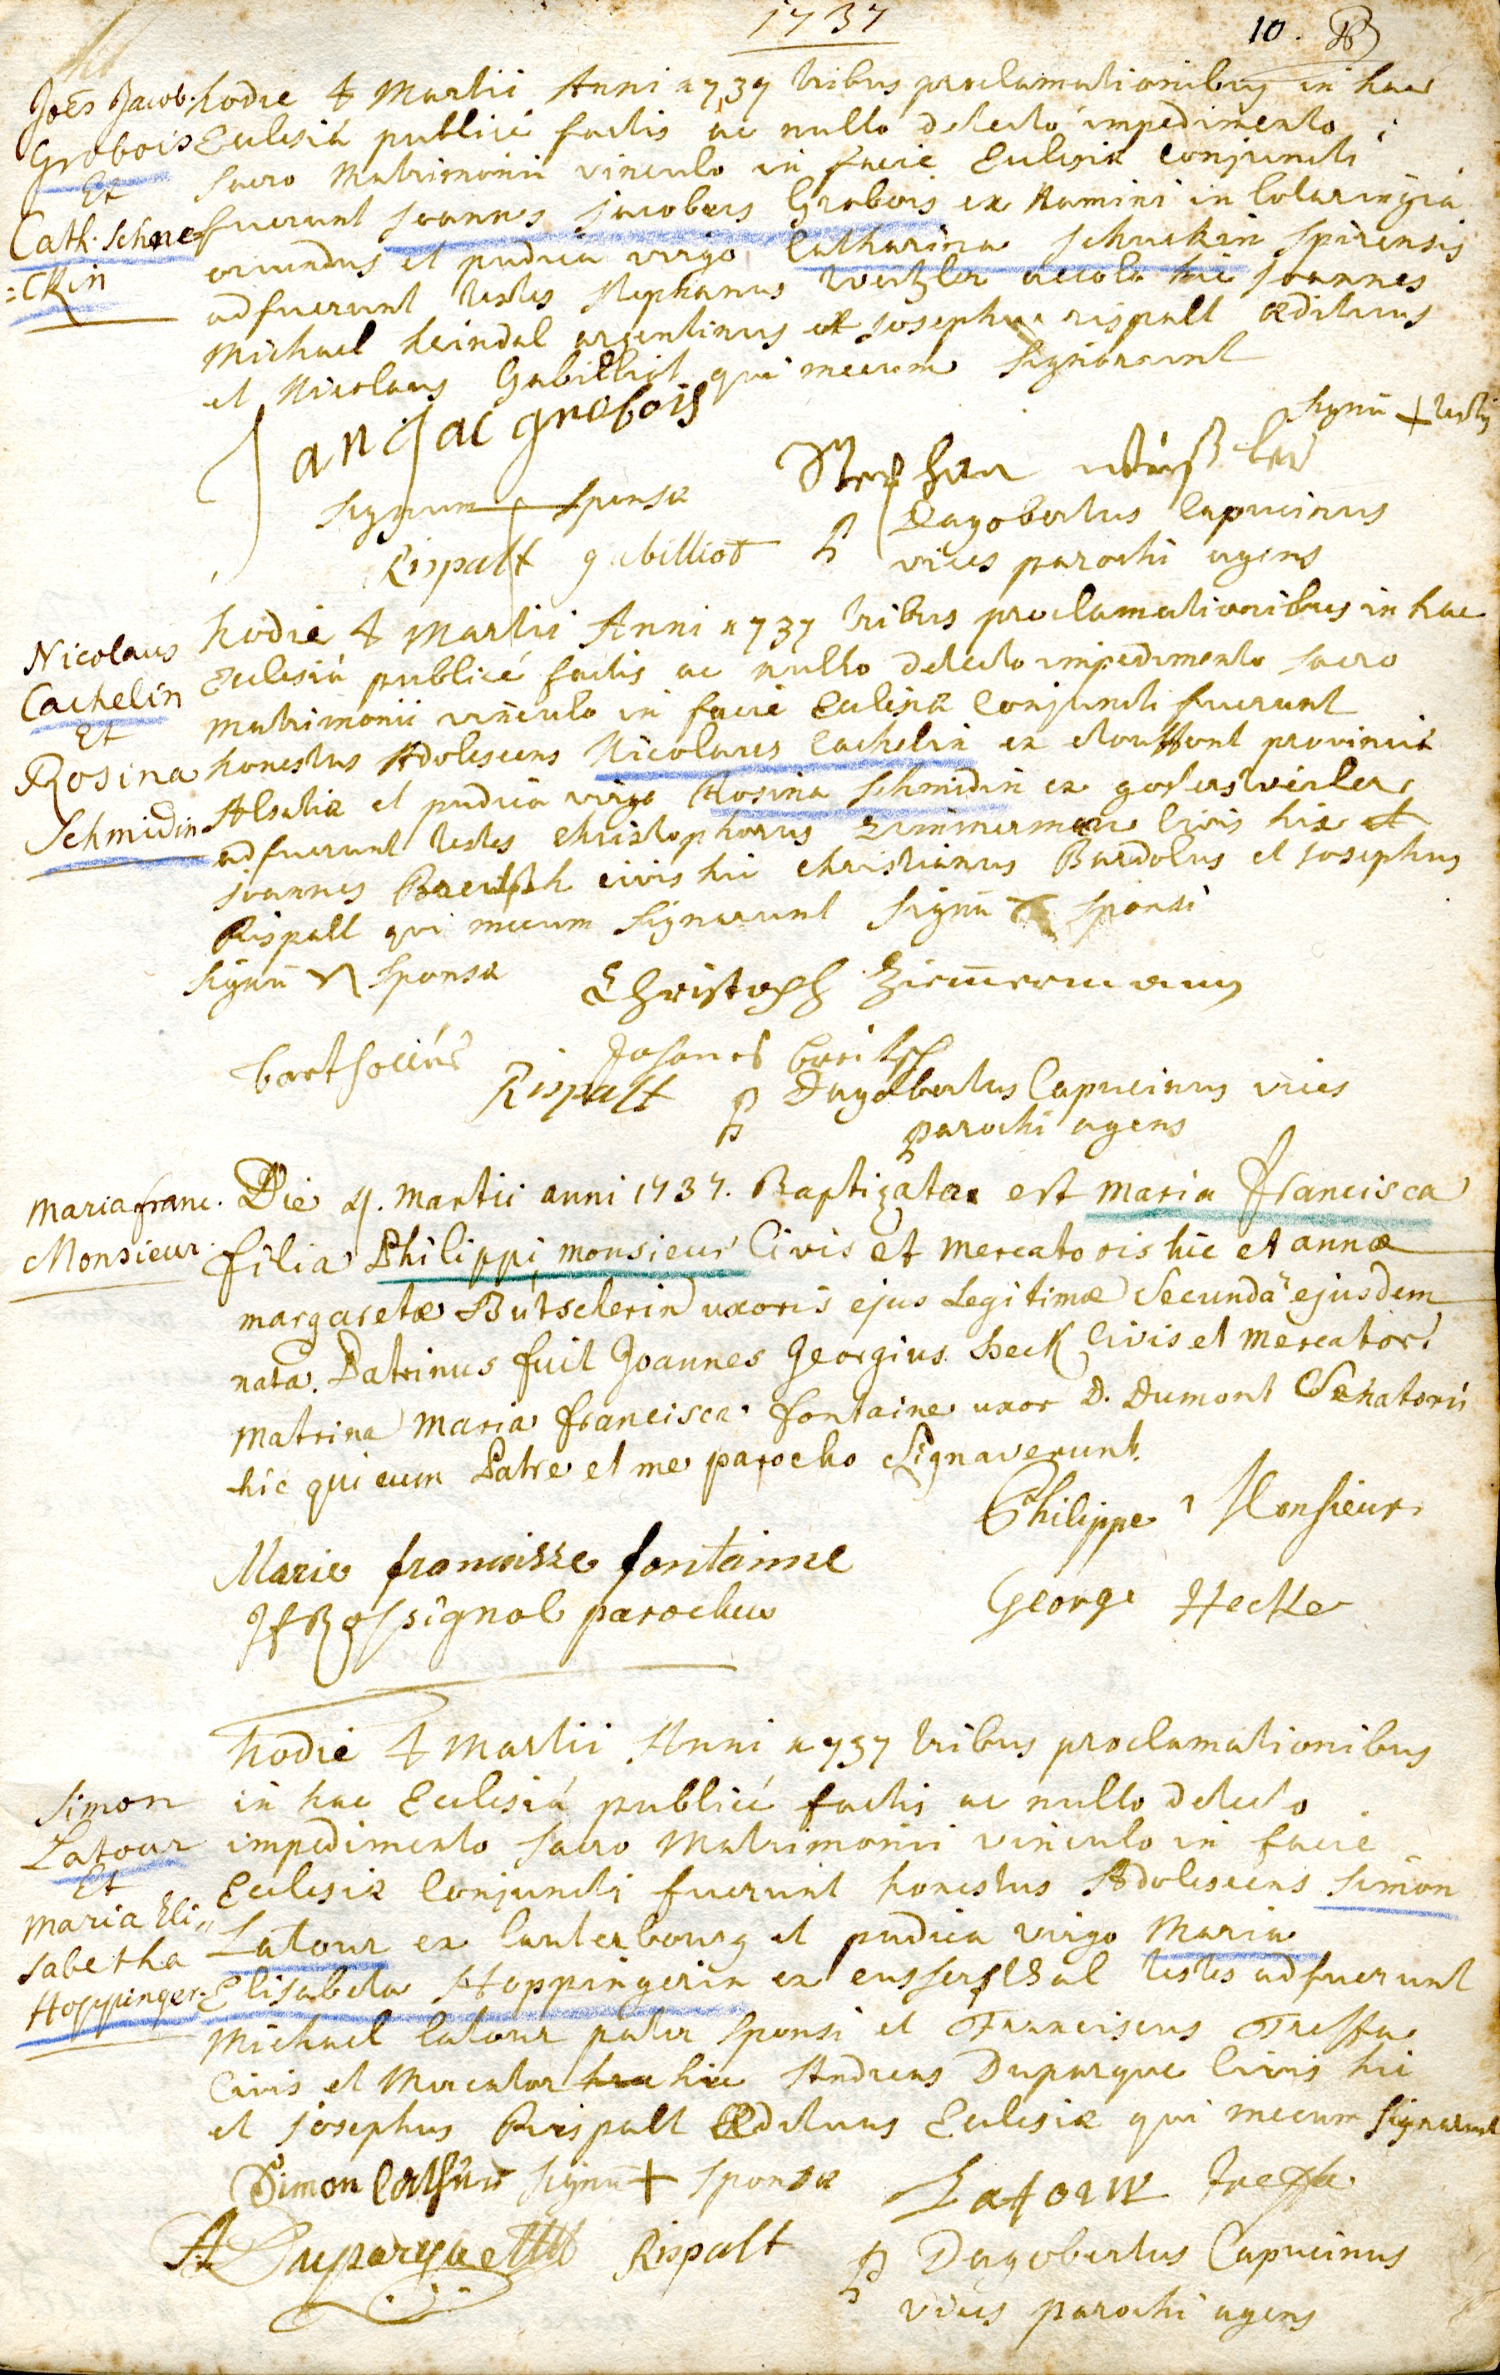 1737
10.
Joēs Jacob.
Grobois
Et
Cath. Schne=
=ckin
hodie 4 Martii Anni 1737 tribus proclamationibus in hac
Ecclesiâ publicè factis ac nullo detecto impedimento
sacro Matrimonii vinculo in facie Ecclesiæ conjuncti
fuerunt joannes jacobus Grobois ex Namini in lotaringiâ
oriundus et pudica virgo Catharina schnekin spirensis
adfuerunt testes stephanus wertzler accola hic joannes
Michael heindel argentinus et josephus rispalt ædituus
et Nicolaus Gabilliot qui mecum signarunt
signū + testis
an jac grobois
Stephan
signum + sponsæ
Dagobertus Capucinus
Rispalt gabilliot
vices parochi agens
Nicolaus
Cachelin
Et
Rosina
Schmidin
hodie 4 Martii Anni 1737 tribus proclamationibus in hac
Ecclesiâ publicé factis ac nullo detecto impedimento sacro
matrimonii vinculo in facie Ecclesiæ Conjuncti fuerunt
honestus Adolescens Nicolaus Cachelin ex etouffont provinciæ
Alsatiæ et pudica virgo Rosina Schmidin ex
adfuerunt testes christophorus zimmerman Civis hic et
joannes civis hic christianus Bardolus et josephus
Rispalt qui mecum signarunt signū sponsi
signū sponsæ
Christoph Zimmermann
Johanes
Rispalt
Dagobertus Capucinus vices
parochi agens
Maria franc.
Monsieur
Die 4. Martii anni 1737. Baptizata est maria francisca
filia Philippi monsieur Civis et mercatoris hic et annæ
margaretæ Bütscherin uxoris ejus Legitimæ Secundâ ejusdem
nata. Patrinus fuit Joannes Georgius heck Civis et mercator
matrina maria francisca fontaine uxor D. Dumont Senatoris
hic qui cum Patre et me parocho Signaverunt.
Philippe Monsieur
Marie francoisse fontainne
George Hecke
Rossignol parochus
Simon
Latour
Et
Maria Eli=
sabetha
Hoppinger.
hodie 4 Martii Anni 1737 tribus proclamationibus
in hac Ecclesiâ publicé factis ac nullo detecto
impedimento sacro Matrimonii vinculo in facie
Ecclesiæ Conjuncti fuerunt honestus Adolescens simon
Latour ex lauterbourg et pudica virgo Maria
Elisabeta Hoppingerin ex eussersthal testes adfuerunt
Michael latour pater sponsi et Franciscus Treffa
Civis et Mercator hic Andreas Duparque Civis hic
et josephus Rispalt Ædituus Ecclesiæ qui mecum signarunt
Simon signū + sponsæ
Latour treffa
A Duparque
Rispalt
Dagobertus Capucinus
vices parochi agens